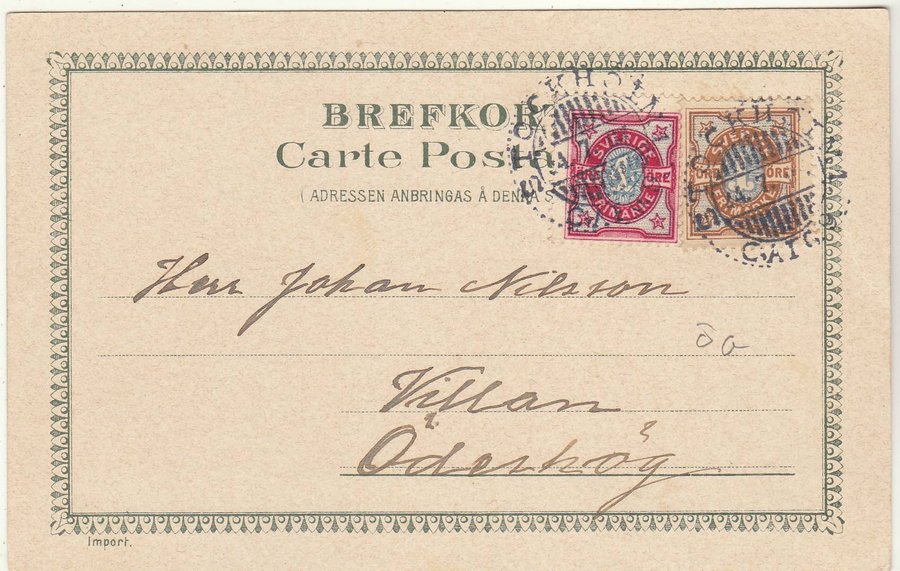 BREFKOR
Carte Posta
(ADRESSEN ANBRINGAS Å DENNA S
SVERIGE
1 ÖRE
FRIMÄRKE
SVERIGE
ÖRE ÖRE
FRIMÄRKE
Herr Johan Nilsson
Villan
Ödeshög
Import.